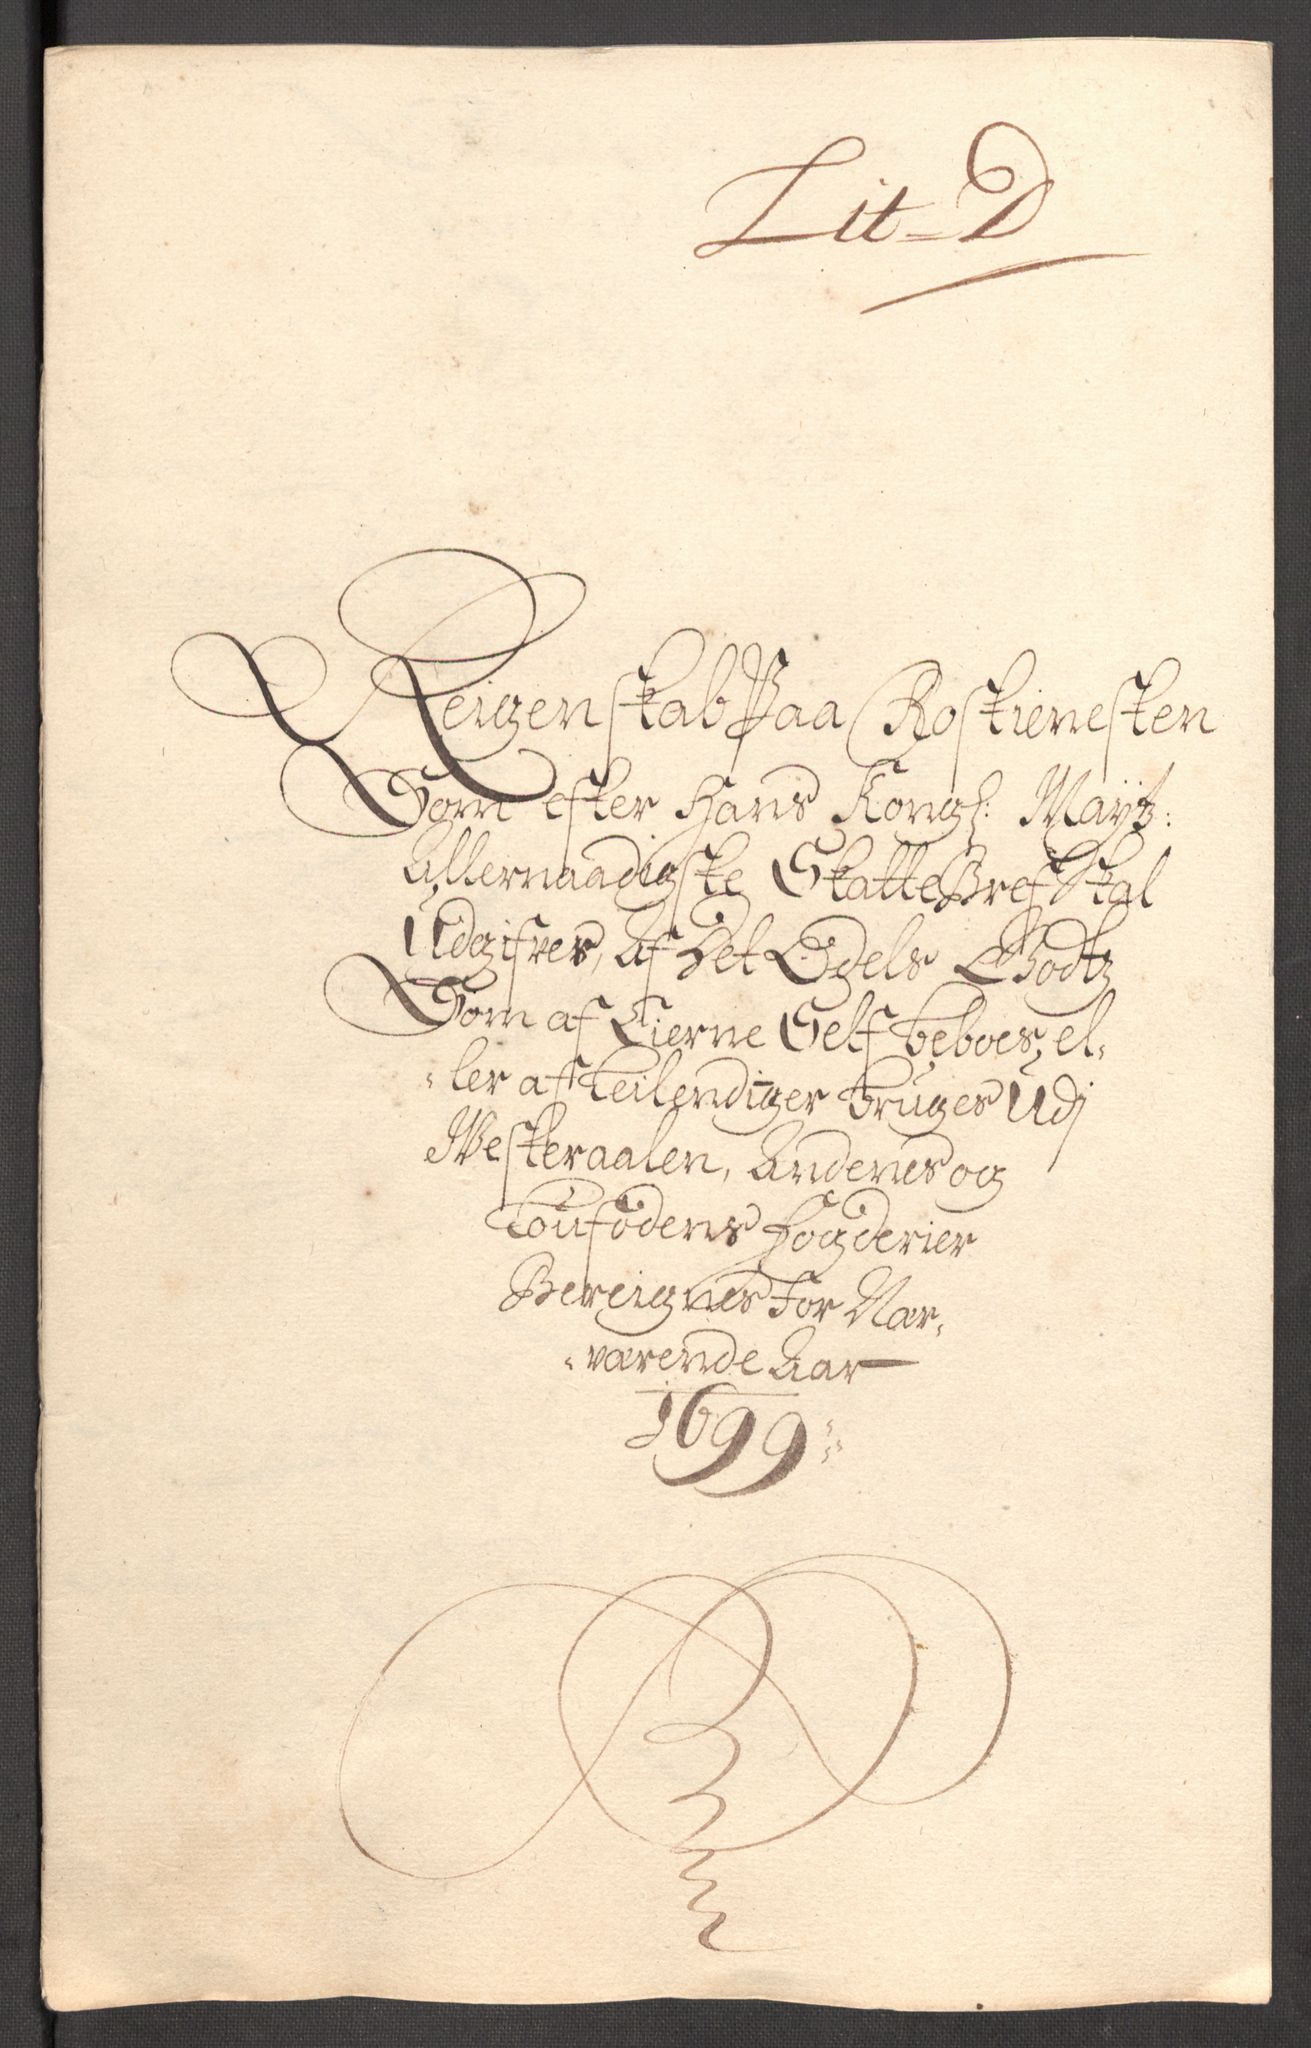 Lit=D
Reigenskab Paa Roskienesten
Som efter Hans Kongl: Mayt:
Allernaadigste SkatteBref Skal
Udgifves, Af Det Odels Godtz
Som af Eierne Self beboes, el-
-ler af Leilendiger bruges Udj
Westeraalen, Andenes og
Loufodens Fogderier
Bereignes for Nær-
-værende Aar
1699